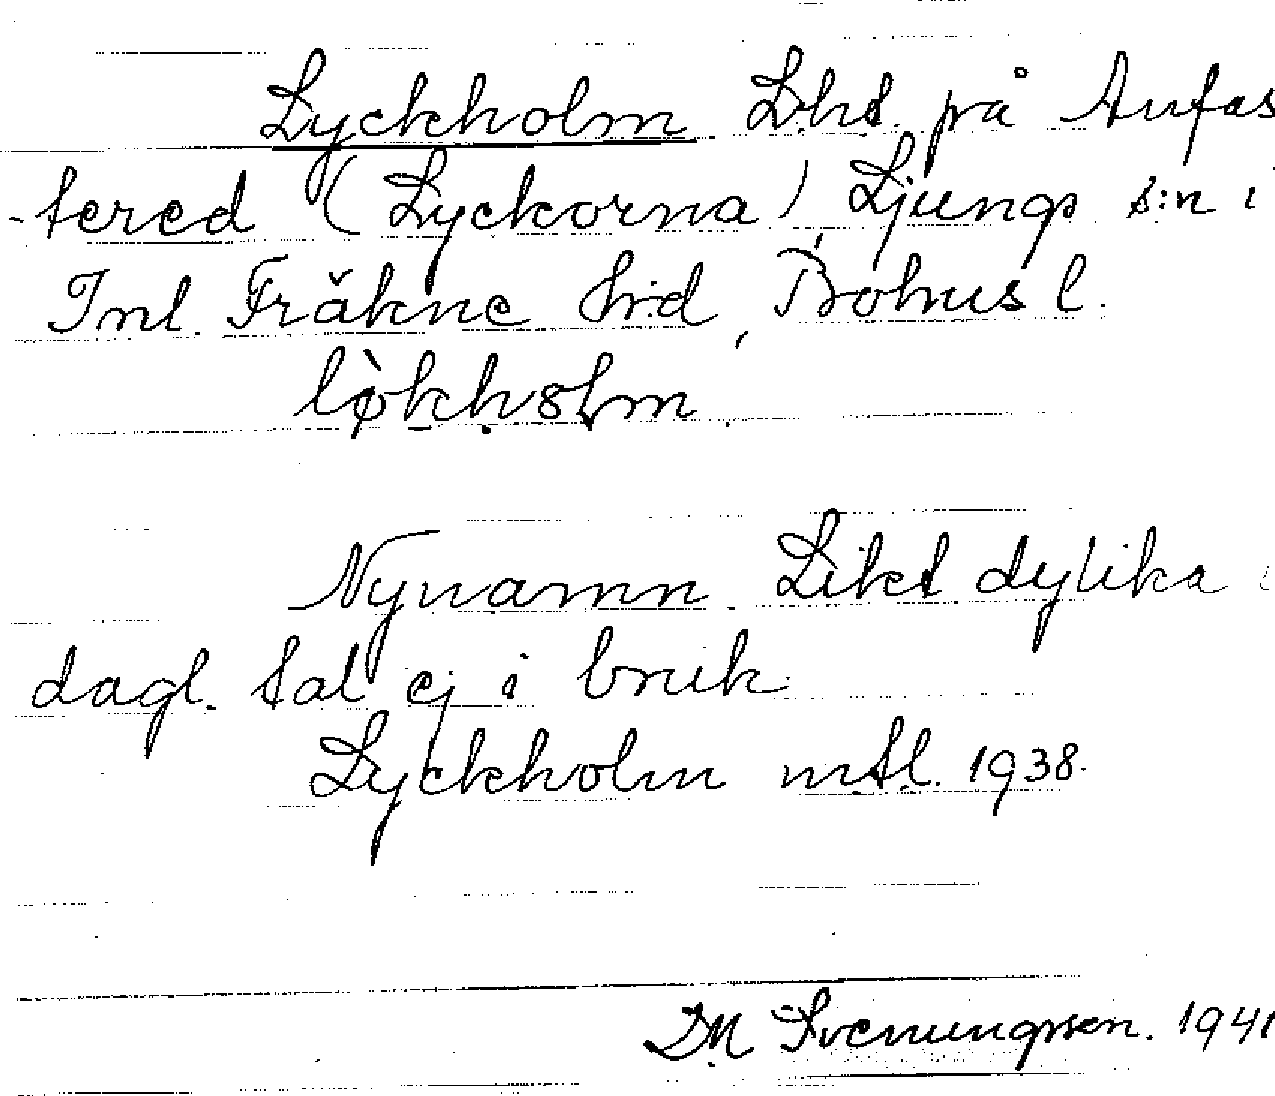 Lyckholm Lht. på Aufas
-tered (Lyckorna) Ljungs s:n i
Inl. Fräkne Hrd, Bohus l.
lø̀kholm
Nynamn. Likt dylika i
dagl. tal ej i bruk.
Lyckholm mtl. 1938.
DM Svenungsson. 1941